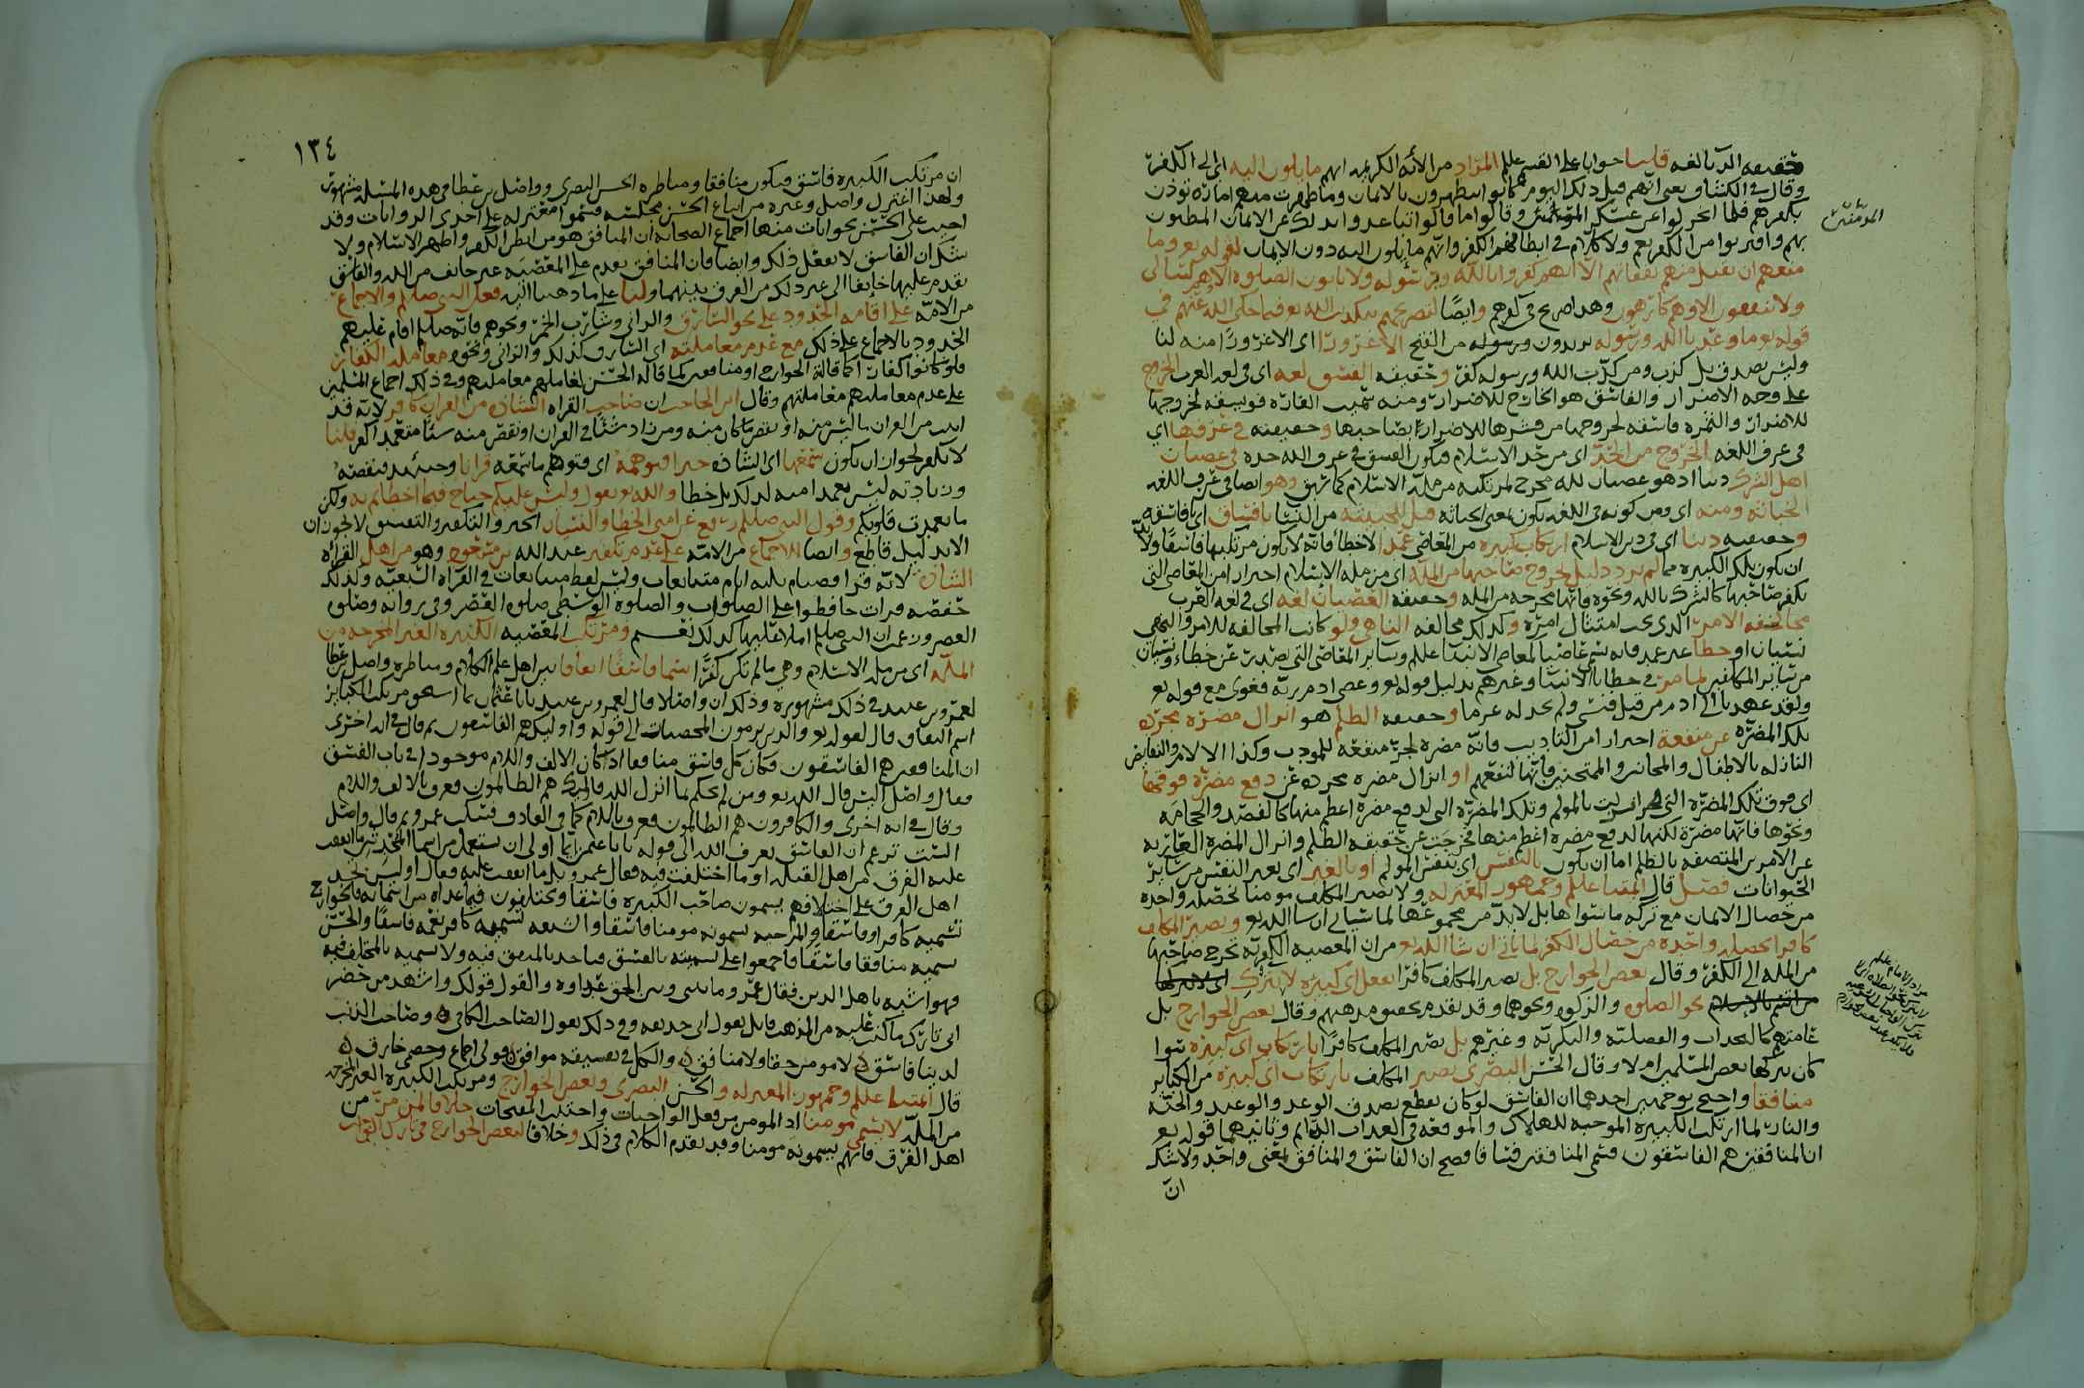 حقيقه الدنا لغه قلنا جوابا على القسم عليلم المراد من الآيه الكريمه انهم ما يلون اليه اي الى الكفر
وقال في الكشاف يعني انهم قبل ذلك اليوم كانوا يتظهرون بالايمان وما ظهرت منهم اماره تؤذن
بكفرهم فلما انخزلوا عن عسكر المؤمنين وقالوا ما قالوا تباعدوا بذلك عن الايمان المظنون
بهم واقتربوا من الكفر نعم ولا كلام في ابطانهم الكفر وانهم مايلون اليه دون الايمان لقوله تع وما
منعهم ان تقبل منهم نفقاتهم الا انهم كفروا بالله وبرسوله ولا ياتون الصلوه الا وهم كسالى
ولا ينفقون الا وهم كارهون وهذا صريح في كفرهم وايضا لتصريحهم بتكذيب الله تع فيما حكى الله عنهم في
قوله تع ما وعدنا الله ورسوله يريدون ورسوله من الفتح الا غرورا اي الا غرورا منه لنا
وليس بصدق بل كذب ومن كذب الله ورسوله كفر وحقيقه الفسق لغه اي في لغه العرب الخروج
على وجه الاضرار والفاسق هو الخارج للاضرار ومنه سميت الفاره فويسقه لخروجها
للاضرار والتمره فاسقه لخروجها من قشرها للاضرار بصاحبها وحقيقته في عرفها اي
في عرف اللغه الخروج من الحد اي من حد الاسلام فيكون الفسق في عرف اللغه حده في عصيان
اهل الشرك دينا اذ هو عصيان لله مخرج لمرتكبه من مله الاسلام كما سبق وهو ايضا في عرف اللغه
الخباثه ومنه اي ومن كونه في اللغه يكون بمعنى الخباثه قيل للخبيثه من النسا يا فساق اي يا فاسقه
وحقيقته دينا اي في دين الاسلام ارتكاب كبيره من المعاصي عمدا لا خطا فانه لا يكون مرتكبها فاسقا ولا بد
ان تكون تلك الكبيره مما لم يرد دليل بخروج صاحبها من المله اي من مله الاسلام احترازا من المعاصي التي
يكفر صاحبها كالشرك بالله ونحوه فانها مخرجه من المله وحقيقه العصيان لغه اي في لغه العرب
مخالفه الامر الذي يجب امتثال امره وكذلك مخالفه الناهي ولو كانت المخالفه للامر والنهي
نسيان او خطا غير عمد فانه سمي عاصيا كمعاصي الانبيا عليلم وساير المعاصي التي تصدر عن خطا ونسيان
من ساير المكلفين لما مر في خطايا الانبيا وغيرهم بدليل قوله تع وعصى ادم ربه فغوى مع قوله تع
ولقد عهدنا الى ادم من قبل فنسي ولم نجد له عزما وحقيقه الظلم هو انزال مضره مجرده
تلك المضره عن منفعه احتراز من التاديب فانه مضره لجر منفعه للمؤدب وكذا الالام والنقايص
النازله بالاطفال والمجانين والممتحنين فانها لنفعهم او انزال مضره مجرده عن دفع مضره فوقها
اي فوق تلك المضره التي انزلت بالمولم وتلك المضره التي لدفع مضره اعظم منها كالفصد والحجامه
ونحوها فانها مضره لكنها لدفع مضره اعظم منها فخرجت عن حقيقه الظلم وانزال المضره العاريه
عن الامرين المتصفه بالظلم اما ان يكون بالنفس اي بنفس المولم او بالغير اي بغير النفس من ساير
الحيوانات فصل قال ايمتنا عليلم وجمهور المعتزله ولا يصير المكلف مومنا بخصله واحده
من خصال الايمان مع تركه ما سواها بل لابد من مجموعها لما سياتي ان شا الله تع ويصير المكلف
كافرا بخصله واحده من خصال الكفر لما ياتي ان شا الله تع من ان المعصيه الكفريه تخرج صاحبها
من المله الى الكفر وقال بعض الخوارج بل يصير المكلف كافرا بفعل اي كبيره لا بترك
نحو الصلوه والزكوه ونحوهما وقد تقدم تحقيق مذهبهم وقال بعض الخوارج بل
عامتهم كالنجدات والفضليه والبكريه وغيرهم بل يصير المكلف كافرا بارتكاب اي كبيره سوا
كان تركها بعض المسلمين ام لا وقال الحسن البصري يصير المكلف بارتكاب اي كبيره من الكباير
منافقا واحتج بوجهين احدهما ان الفاسق لو كان يقطع بصدق الوعد والوعيد والجنه
والنار لما ارتكب الكبيره الموجبه للهلاك والموقعه في العذاب الدايم وثانيهما قوله تع
ان المنافقين هم الفاسقون فسمى المنافقين فساقا فصح ان الفاسق والمنافق بمعنى واحد ولا شك
ان
المؤمنين
١٣٤
ان مرتكب الكبيره فاسق فيكون منافقا ومناظره الحسن البصري وواصل بن عطا في هذه المسئله مشهوره
ولهذا اعتزل واصل وغيره من اتباع الحسن مجلسه فسموا معتزله على احدى الروايات وقد
اجيب على الحسن بجوابات منها اجماع الصحابه ان المنافق هو من ابطن الكفر واظهر الاسلام ولا
شك ان الفاسق لا يفعل ذلك وايضا فان المنافق يقدم على المعصيه غير خايف من الله والفاسق
يقدم عليها خايفا الى غير ذلك من الفرق بينهما ولنا على ما ذهبنا اليه فعل النبي صلعم والاجماع
من الامه على اقامه الحدود على نحو السارق والزاني وشارب الخمر ونحوهم فانه صلعم اقام عليهم
الحدود بالاجماع على ذلك مع عدم معاملته اي السارق كذلك والزاني ونحوه معامله الكفار
فلو كانوا كفارا كما قالته الخوارج او منافقين كما قاله الحسن لعاملهم معاملتهم وفي ذلك اجماع المسلمين
على عدم معاملتهم معاملتهم وقال ابن الحاجب ان صاحب القراه الشاذه من القران كافر لانه قد
اثبت من القران ما ليس منه او نقص ما كان منه ومن زاد شيئا في القران او نقص منه شيئا متعمدا كفر قلنا
لا يكفر لجواز ان يكون سمعها اي الشاذه خبرا فتوهمه اي فتوهم ما سمعه قرانا وحينئذ فنقصه
وزيادته ليس بعمد منه لذلك بل خطا والله تع يقول وليس عليكم جناح فيما اخطاتم به ولكن
ما تعمدت قلوبكم وقول النبي صلعم رفع عن امتي الخطا والنسيان الخبر والتكفير والتفسيق لا يجوزان
الا بدليل قاطع وايضا للاجماع من الامه على عدم تكفير عبد الله بن مسعود وهو من اهل القراه
الشاذه لانه قرا فصيام ثلثه ايام متتابعات وليس لفظ متتابعات في القراه السبعيه وكذلك
حفصه قرات حافظوا على الصلوات والصلوه الوسطى صلوه العصر وفي روايه وصلوه
العصر وزعمت ان النبي صلعم املاه عليها كذلك نعم ومرتكب المعصيه الكبيره الغير المخرجه من
المله اي من مله الاسلام وهي ما لم تكن كفرا يسمى فاسقا اتفاقا بين اهل علم الكلام ومناظره واصل بن عطا
لعمرو بن عبيد في ذلك مشهوره وذلك ان واصلا قال لعمرو بن عبيد يا ابا عثمان بما استحق مرتكب الكباير
اسم النفاق قال لقوله تع والذين يرمون المحصنات الى قوله واوليك هم الفاسقون ثم قال في ايه اخرى
ان المنافقين هم الفاسقون فكان كل فاسق منافقا اذ كان الالف واللام موجودا في باب الفسق
فقال واصل اليس قال الله تع ومن لم يحكم بما انزل الله فاوليك هم الظالمون فعرف بالالف واللام
وقال في ايه اخرى والكافرون هم الظالمون فعرف باللام كما في القاذف فسكت عمرو ثم قال واصل
الست تزعم ان الفاسق يعرف الله الى قوله يا با عثمن ايما اولى ان يستعمل من اسما المحدثين ما اتفقت
عليه الفرق من اهل القبله او ما اختلفت فيه فقال عمرو بل ما اتفقت عليه فقال اوليس نجد
اهل الفرق على اختلافهم يسمون صاحب الكبيره فاسقا ويختلفون فيما عداه من اسمايه فالخوارج
تسميه كافرا وفاسقا والمرجيه تسميه مومنا فاسقا والشيعه تسميه كافر نعمه فاسقا والحسن
يسميه منافقا فاسقا فاجمعوا على تسميته بالفسق فناخذ بالمتفق فيه ولا نسميه بالمختلف فيه
فهو اشبه باهل الدين فقال عمرو ما بيني وبين الحق عداوه والقول قولك واشهد من حضر
اني تارك ما كنت عليه من المذهب قايل بقول ابي حذيفه وفي ذلك يقول الصاحب الكافي وصاحب الذنب
لدينا فاسق لا مومن حقا ولا منافق والكل في تفسيقه موافق قولي اجماع وخصمي خارق
قال ايمتنا عليلم وجمهور المعتزله والحسن البصري وبعض الخوارج ومرتكب الكبيره الغير المخرجه
من المله لا يسمى مومنا اذ المومن من فعل الواجبات واجتنب المقبحات خلافا لمن مر من
اهل الفرق فانهم يسمونه مومنا وقد تقدم الكلام في ذلك وخلافا لبعض الخوارج في تارك